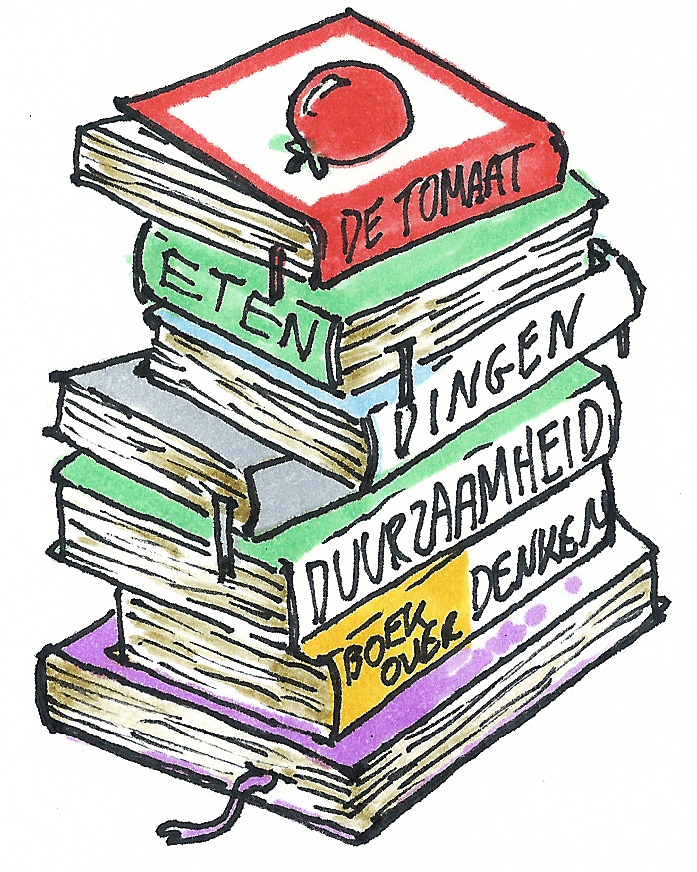 DE TOMAAT
ETEN
DINGEN
DUURZAAMHEID
BOEK
OVER
DENKEN